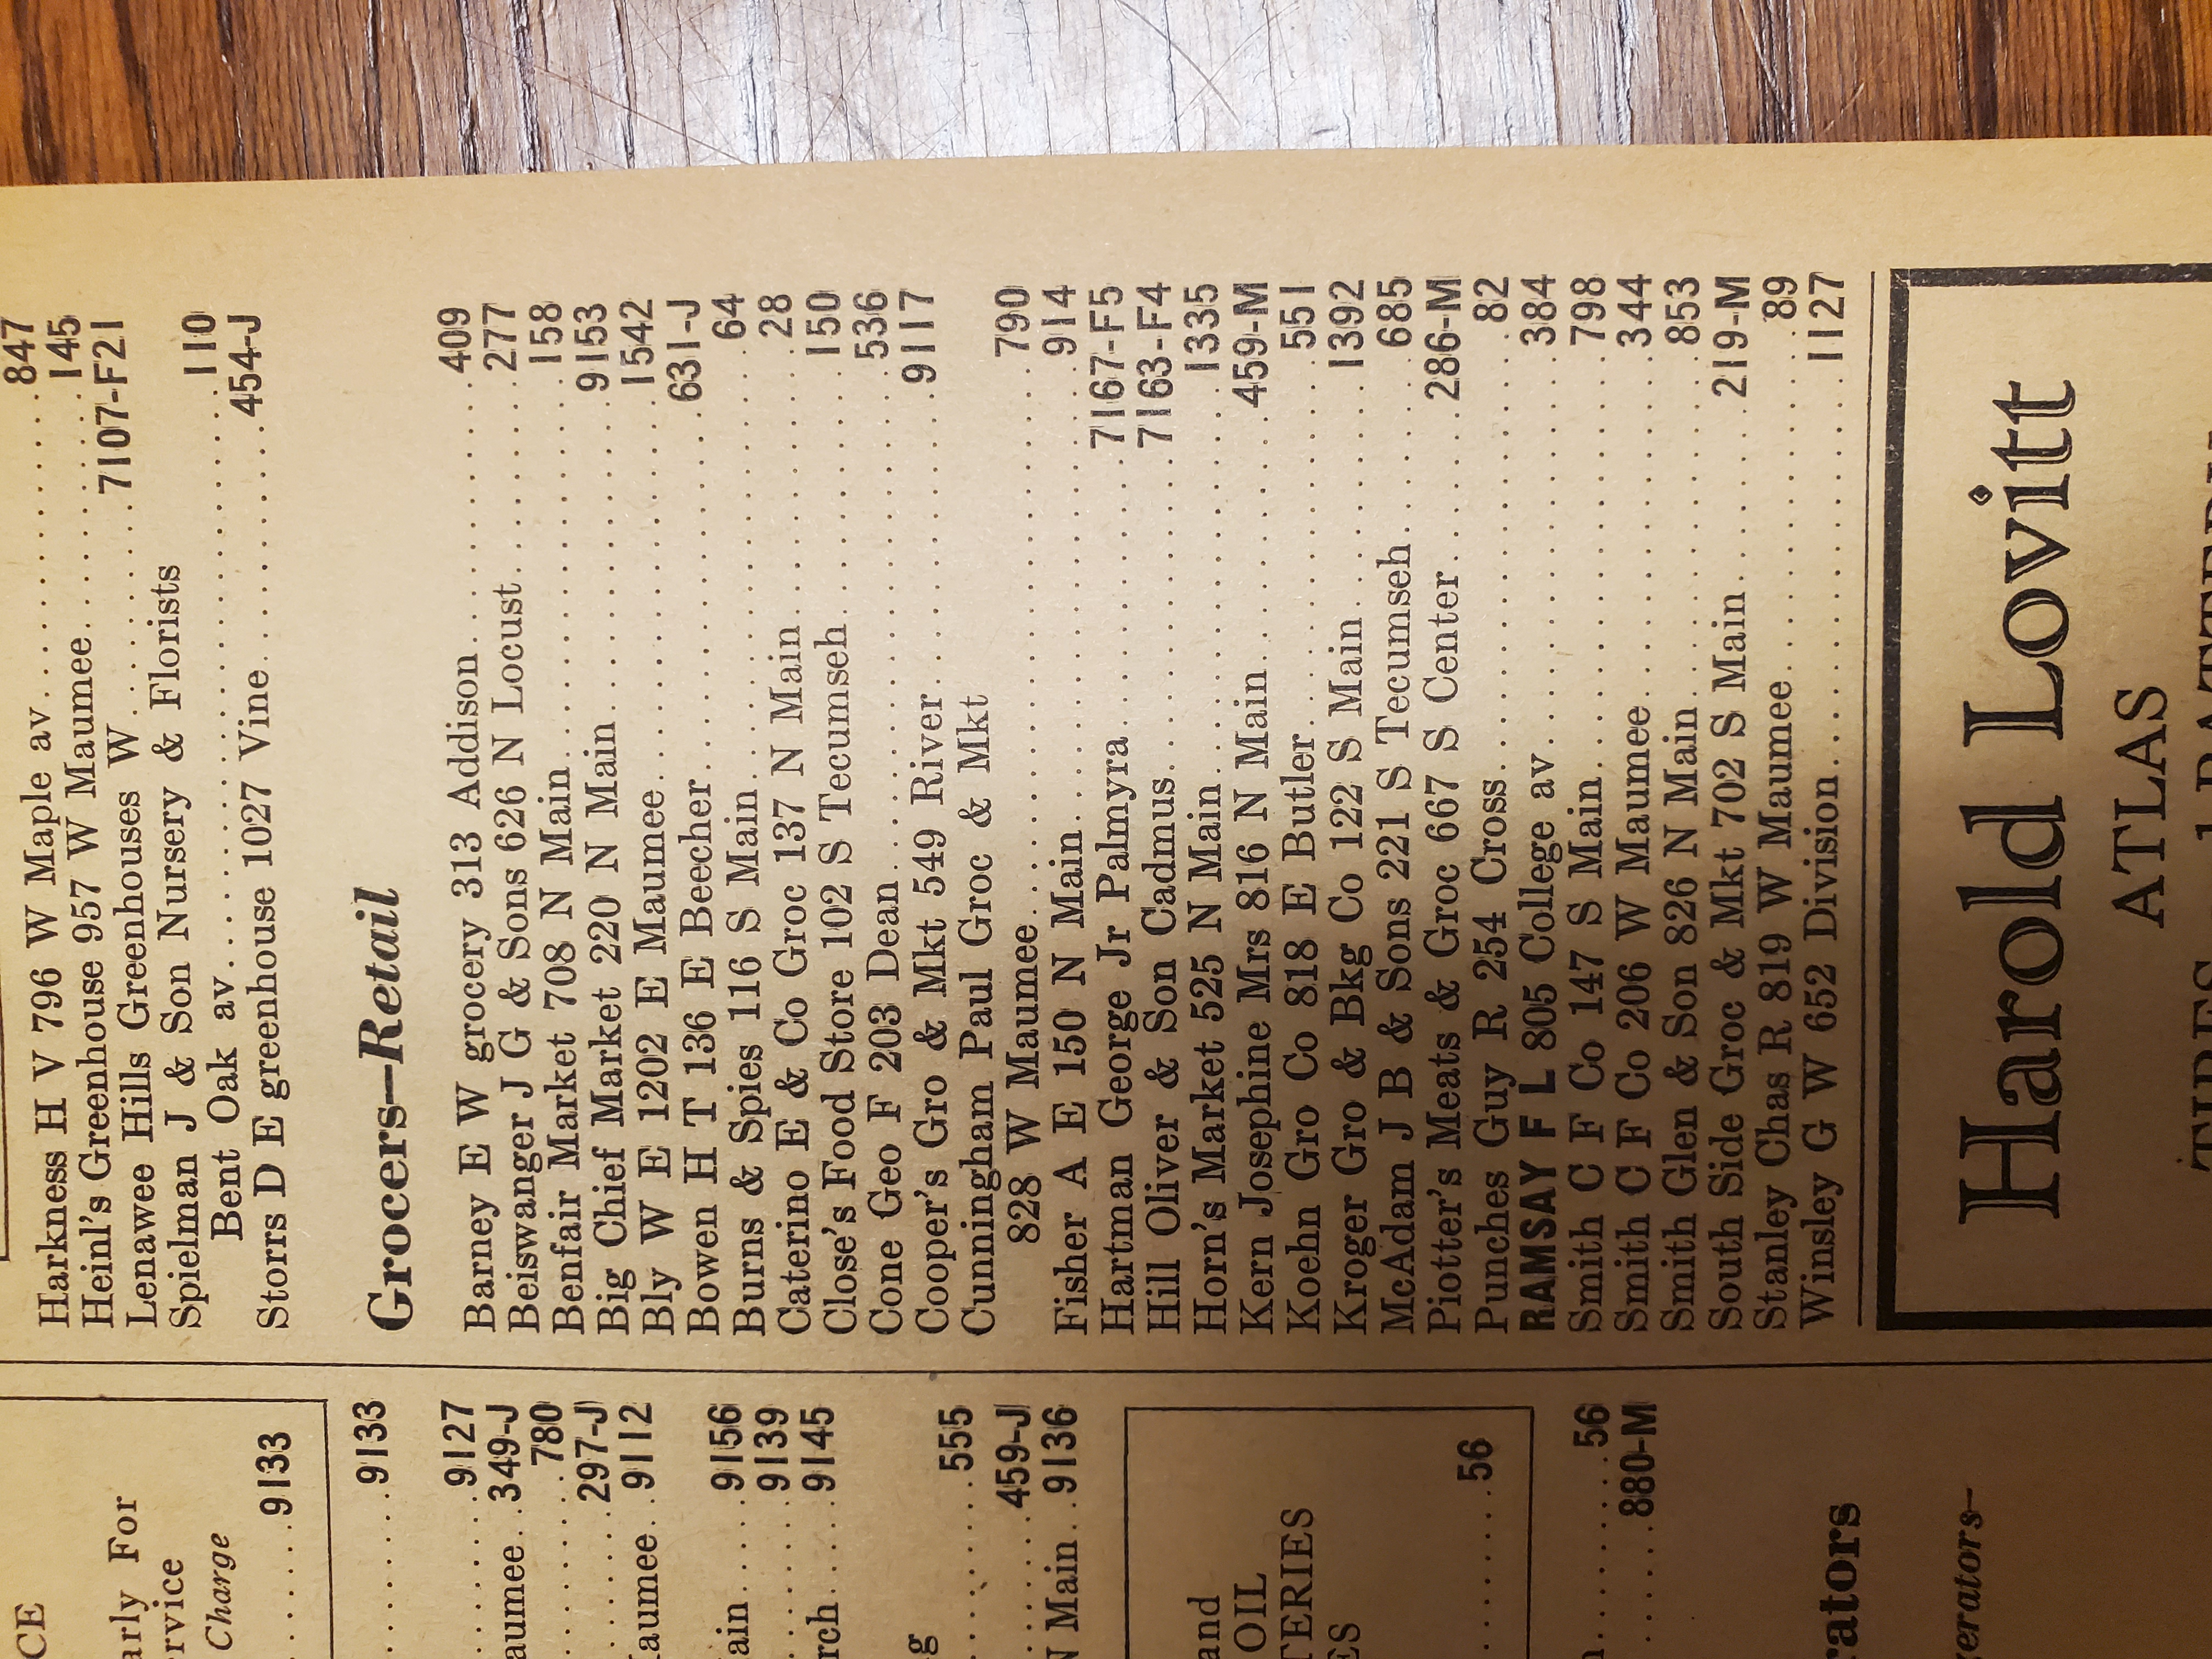 CE
arly For
rvice
Charge
........9133
........9133
........9127
aumee..349-J
........780
........297-J
aumee..9112
ain......9156
........9139
rch......9145
g
........555
........459-J
N Main..9136
and
OIL
TERIES
ES
........56
n........56
........880-M
rators
gerators—
Harkness H V 796 W Maple av........847
Heinl's Greenhouse 957 W Maumee........145
Lenawee Hills Greenhouses W........7107-F21
Spielman J & Son Nursery & Florists
Bent Oak av........110
Storrs D E greenhouse 1027 Vine........454-J
Grocers—Retail
Barney E W grocery 313 Addison........409
Beiswanger J G & Sons 626 N Locust........277
Benfair Market 708 N Main........158
Big Chief Market 220 N Main........9153
Bly W E 1202 E Maumee........1542
Bowen H T 136 E Beecher........631-J
Burns & Spies 116 S Main........64
Caterino E & Co Groc 137 N Main........28
Close's Food Store 102 S Tecumseh........150
Cone Geo F 203 Dean........536
Cooper's Gro & Mkt 549 River........9117
Cunningham Paul Groc & Mkt
828 W Maumee........790
Fisher A E 150 N Main........914
Hartman George Jr Palmyra........7167-F5
Hill Oliver & Son Cadmus........7163-F4
Horn's Market 525 N Main........1335
Kern Josephine Mrs 816 N Main........459-M
Koehn Gro Co 818 E Butler........551
Kroger Gro & Bkg Co 122 S Main........1392
McAdam J B & Sons 221 S Tecumseh........685
Piotter's Meats & Groc 667 S Center........286-M
Punches Guy R 254 Cross........82
RAMSAY F L 805 College av........384
Smith C F Co 147 S Main........798
Smith C F Co 206 W Maumee........344
Smith Glen & Son 826 N Main........853
South Side Groc & Mkt 702 S Main........219-M
Stanley Chas R 819 W Maumee........89
Winsley G W 652 Division........1127
Harold Lovitt
ATLAS